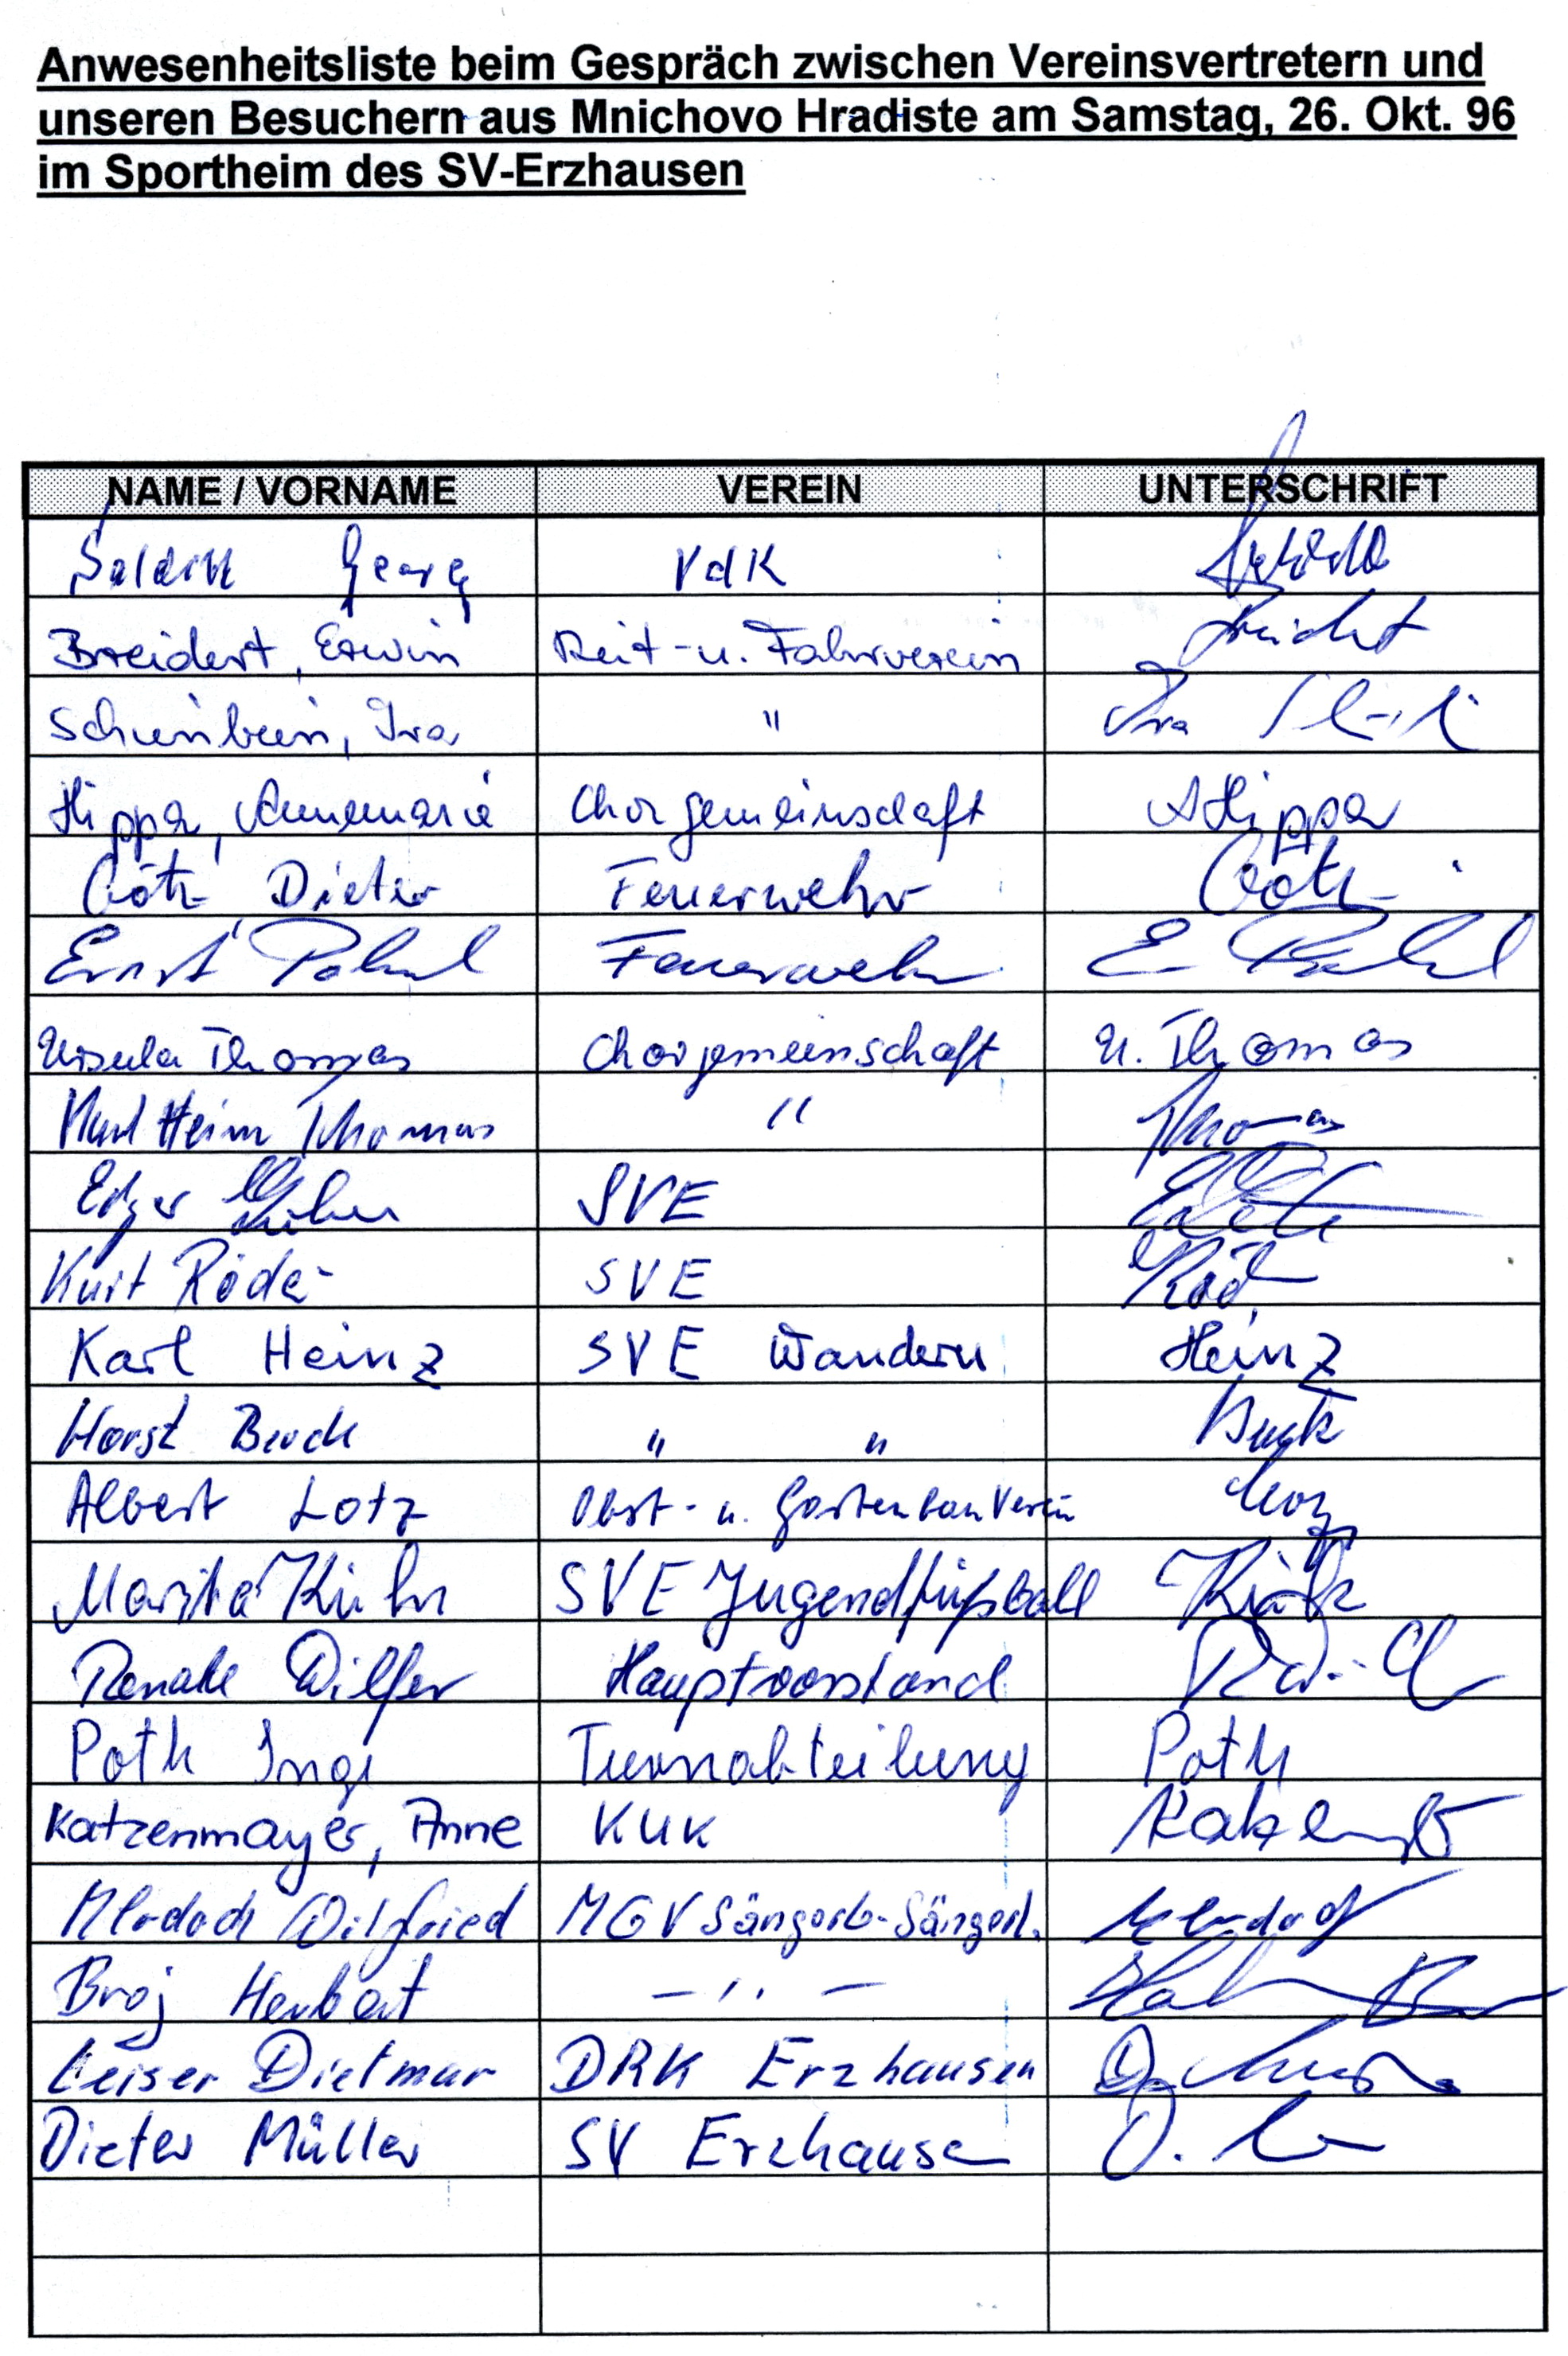 Anwesenheitsliste beim Gespräch zwischen Vereinsvertretern und
unseren Besuchern aus Mnichovo Hradiste am Samstag, 26. Okt. 96
im Sportheim des SV-Erzhausen
NAME / VORNAME VEREIN UNTERSCHRIFT
Georg VdK
Breidert, Erwin Reit-u. Fahrverein
Ira " Ira
Hippa, Annemarie Chorgemeinschaft AHippa
Götz Dieter Feuerwehr Götz
Ernst Feuerwehr E.
Ursula Thomas Chorgemeinschaft U. Thomas
Karl Heinz Thomas " Thomas
Edgar SVE
Kurt Röder SVE Röder
Karl Heinz SVE Wandern Heinz
Horst Buck " " Buck
Albert Lotz Obst- u. Gartenbauverein Lotz
Marita Kühn SVE Jugendfußball
Renate Dilfer Hauptvorstand
Poth Inge Turnabteilung Poth
Katzenmayer, Anne KUK
Mlodoch Wilfried MGV Sängerb.-Sängerl.
Broj Herbert - " -
Leiser Dietmar DRK Erzhausen
Dieter Müller SV Erzhausen